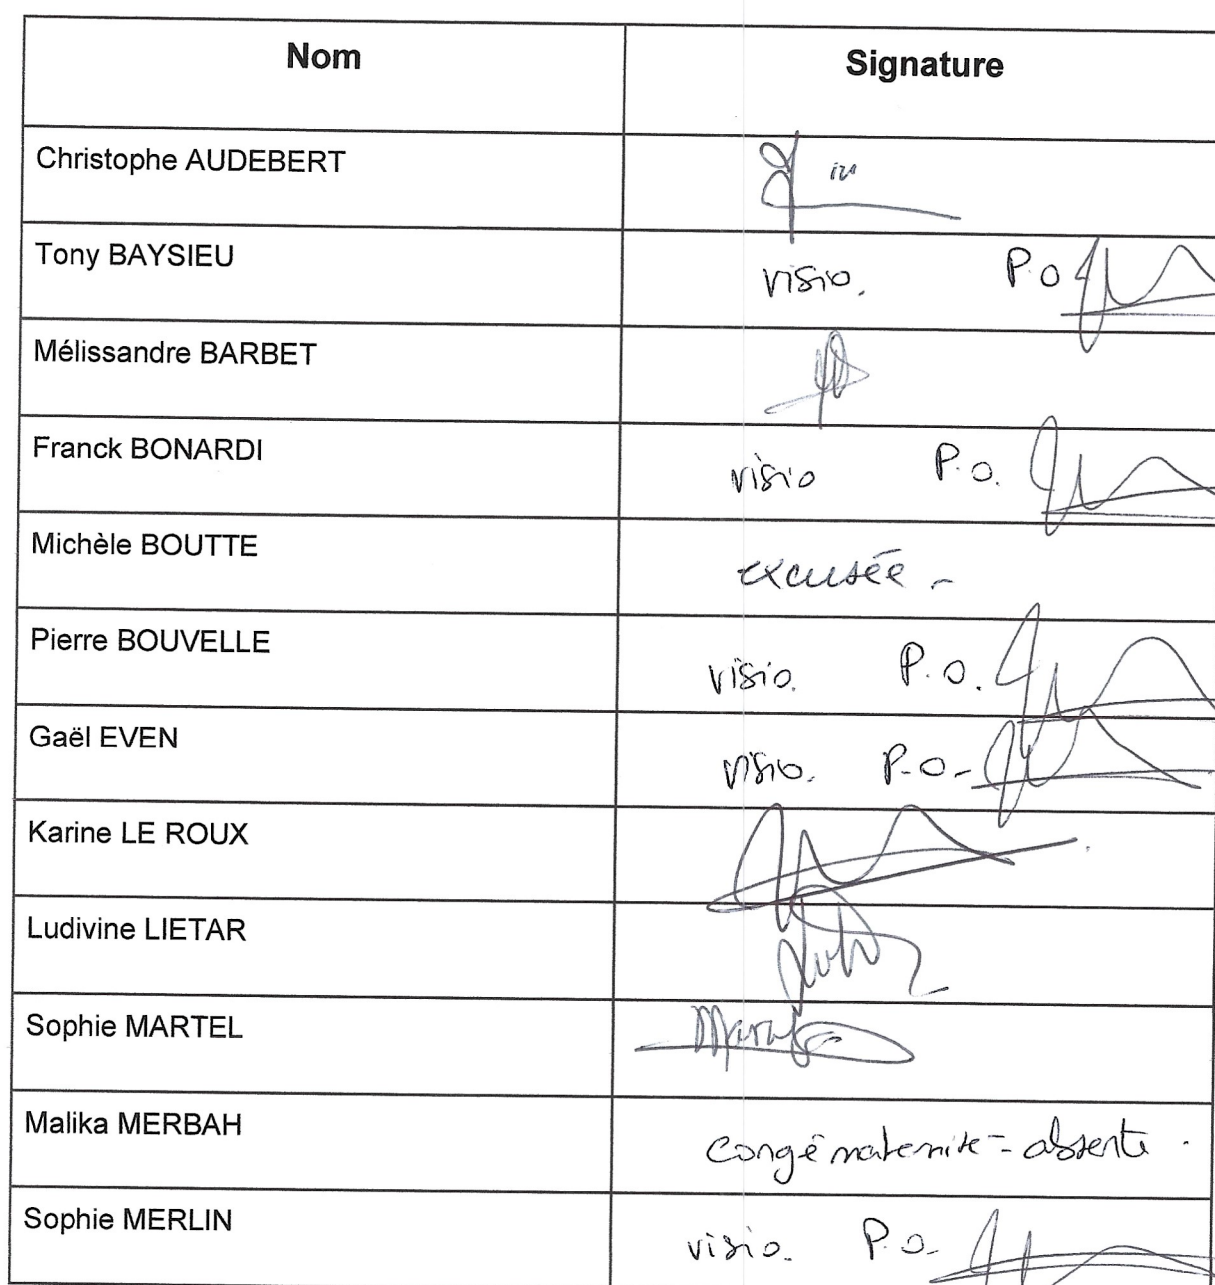 Nom Signature
Christophe AUDEBERT
Tony BAYSIEU visio. P.O
Mélissandre BARBET
Franck BONARDI visio P.O.
Michèle BOUTTE excusée -
Pierre BOUVELLE visio. P.O.
Gaël EVEN visio. P.O-
Karine LE ROUX
Ludivine LIETAR
Sophie MARTEL
Malika MERBAH congé maternité - absente.
Sophie MERLIN visio. P.O-